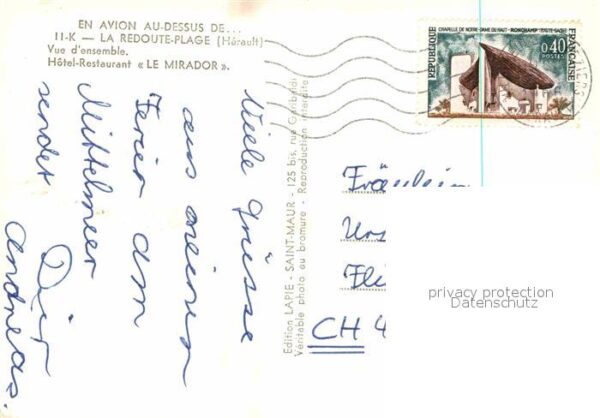 EN AVION AU-DESSUS DE...
11-K — LA REDOUTE-PLAGE (Hérault)
Vue d'ensemble.
Hôtel-Restaurant « LE MIRADOR ».
Viele Grüsse
aus meinen
Ferien am
Mittelmeer
sendet Dir
Andreas.
Edition LAPIE - SAINT-MAUR - 125 bis, rue Garibaldi
Véritable photo au bromure - Reproduction interdite
CHAPELLE DE NOTRE-DAME DU HAUT - RONCHAMP (HAUTE-SAÔNE)
RÉPUBLIQUE
FRANÇAISE
0,40
POSTES
Fräulein
Urs
Fli
CH 4
privacy protection
Datenschutz